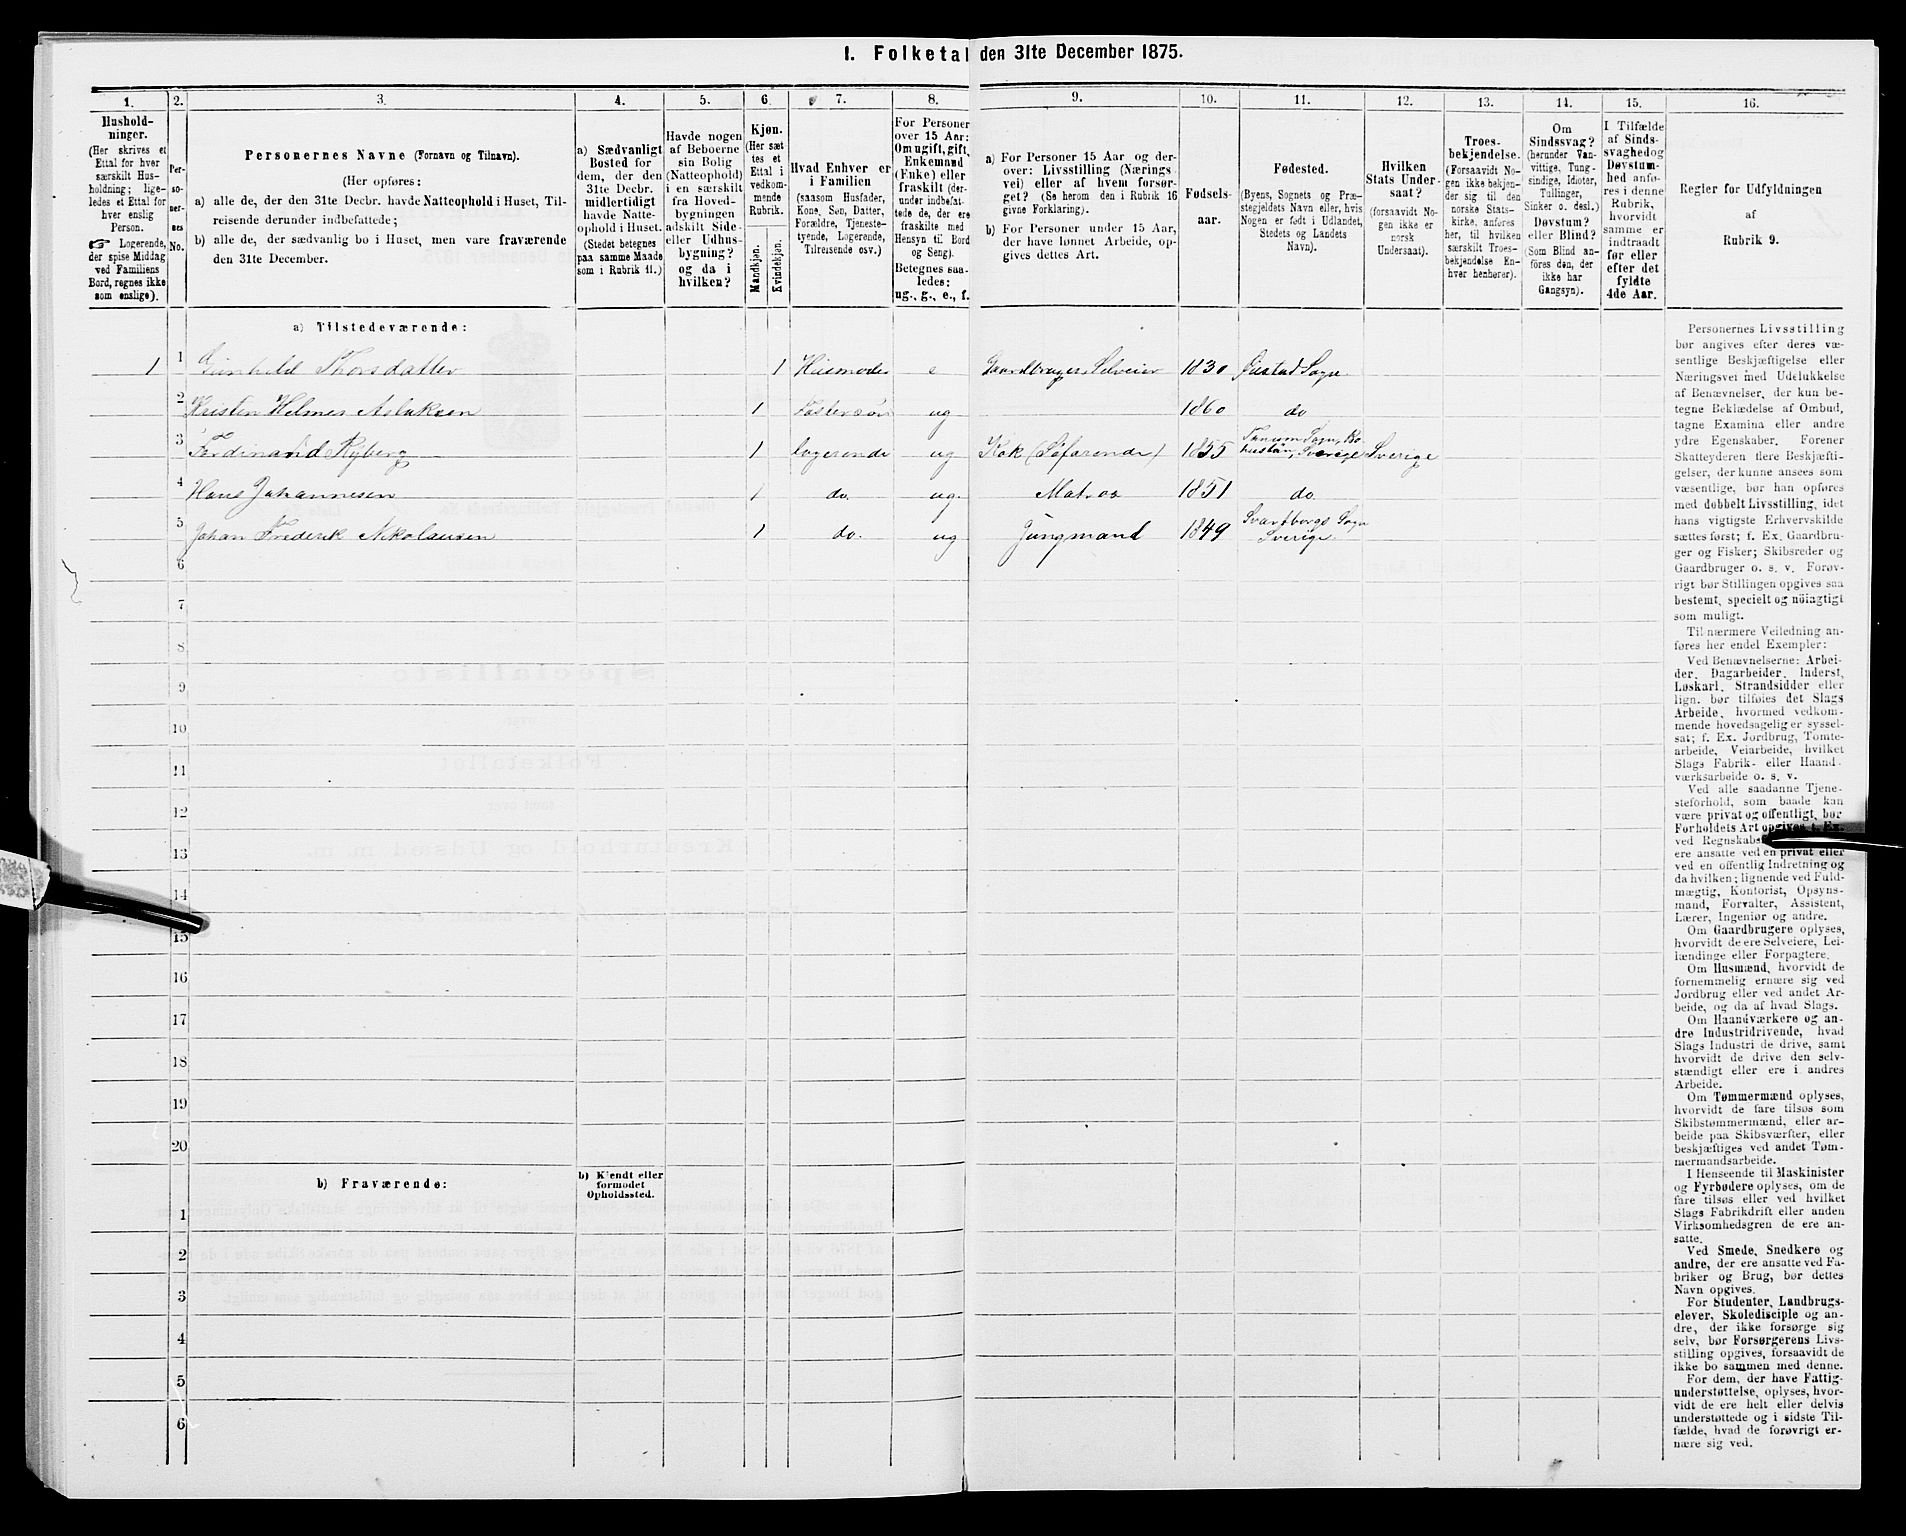 1. Folketal den 31te December 1875.
1. 2. 3. 4. 5. 6. 7. 8. 9. 10. 11. 12. 13. 14. 15. 16.
Hushold-
ninger.
(Her skrives et
Ettal for hver
særskilt Hus-
holdning; lige-
ledes et Ettal for
hver enslig
Person.
☞ Logerende,
der spise Middag
ved Familiens
Bord, regnes ikke
som enslige).
Per-
so-
ner-
nes
No.
Personernes Navne (Fornavn og Tilnavn).
(Her opføres:
a) alle de, der den 31te Decbr. havde Natteophold i Huset, Til-
reisende derunder indbefattede;
b) alle de, der sædvanlig bo i Huset, men vare fraværende
den 31te December.
a) Sædvanligt
Bosted for
dem, der den
31te Decbr.
midlertidigt
havde Natte-
ophold i Huset.
(Stedet betegnes
paa samme Maade
som i Rubrik 11.)
Havde nogen
af Beboerne
sin Bolig
(Natteophold)
i en særskilt
fra Hoved-
bygningen
adskilt Side-
eller Udhus-
bygning?
og da i
hvilken?
Kjøn.
(Her sæt-
tes et
Ettal i
vedkom-
mende
Rubrik.
Mandkjøn.
Kvindekjøn.
Hvad Enhver er
i Familien
(saasom Husfader,
Kone, Søn, Datter,
Forældre, Tjeneste-
tyende, Logerende,
Tilreisende osv.)
For Personer
over 15 Aar:
Om ugift, gift,
Enkemand
(Enke) eller
fraskilt (der-
under indbefat-
tede de, der ere
fraskilte med
Hensyn til Bord
og Seng).
Betegnes saa-
ledes:
ug., g., e., f.
a) For Personer 15 Aar og der-
over: Livsstilling (Nærings-
vei) eller af hvem forsør-
get? (Se herom den i Rubrik 16
givne Forklaring).
b) For Personer under 15 Aar,
der have lønnet Arbeide, op-
gives dettes Art.
Fødsels-
aar.
Fødested.
(Byens, Sognets og Præ-
stegjeldets Navn eller, hvis
Nogen er født i Udlandet,
Stedets og Landets
Navn).
Hvilken
Stats Under-
saat?
(forsaavidt No-
gen ikke er
norsk
Undersaat).
Troes-
bekjendelse.
(Forsaavidt No-
gen ikke bekjen-
der sig til den
norske Stats-
kirke, anføres
her, til hvilken
særskilt Troes-
bekjendelse En-
hver henhører).
Om
Sindssvag?
(herunder Van-
vittige, Tung-
sindige, Idioter,
Tullinger,
Sinker o. desl.)
Døvstum?
eller Blind?
(Som Blind an-
føres den, der
ikke har
Gangsyn).
I Tilfælde
af Sinds-
svaghed og
Døvstum-
hed anfø-
res i denne
Rubrik,
hvorvidt
samme er
indtraadt
før eller
efter det
fyldte
4de Aar.
Regler for Udfyldningen
af
Rubrik 9.
a) Tilstedeværende:
1 1 Gunhild Thorsdatter 1 Husmoder e Gaardbruger, Selveier 1830 Øiestad Sogn
2 Kristen Helmer Aslaksen 1 Fostersøn ug 1860 do
3 Ferdinand Ryberg 1 logerende ug Kok (Søfarende) 1855 Tanum Sogn, Bo-
huslän, Sverige Sverige
4 Hans Johannesen 1 do. ug. Matros 1851 do
5 Johan Frederik Nikolausen 1 do. ug Jungmand 1849 Svartborgs Sogn
Sverige
6
7
8
9
10
11
12
13
14
15
16
17
18
19
20
b) Fraværende:
b) Kjendt eller
formodet
Opholdssted.
1
2
3
4
5
6
Personernes Livsstilling
bør angives efter deres væ-
sentlige Beskjæftigelse eller
Næringsvei med Udelukkelse
af Benævnelser, der kun be-
tegne Beklædelse af Ombud,
tagne Examina eller andre
ydre Egenskaber. Forener
Skatteyderen flere Beskjæfti-
gelser, der kunne ansees som
væsentlige, bør han opføres
med dobbelt Livsstilling, idet
hans vigtigste Erhvervskilde
sættes først; f. Ex. Gaardbru-
ger og Fisker; Skibsreder og
Gaardbruger o. s. v. Forøv-
rigt bør Stillingen opgives saa
bestemt, specielt og nöiagtigt
som muligt.
Til nærmere Veiledning an-
føres her endel Exempler:
Ved Benævnelserne: Arbei-
der, Dagarbeider, Inderst,
Løskarl, Strandsidder eller
lign. bør tilføies det Slags
Arbeide, hvormed vedkom-
mende hovedsagelig er syssel-
sat; f. Ex. Jordbrug, Tomte-
arbeide, Veiarbeide, hvilket
Slags Fabrik- eller Haand-
værksarbeide o. s. v.
Ved alle saadanne Tjene-
steforhold, som baade kan
være privat og offentligt, bør
Forholdets Art opgives, f. Ex.
ved Regnskabs
ere ansatte ved en privat eller
ved en offentlig Indretning og
da hvilken; lignende ved Fuld-
mægtig, Kontorist, Opsyns-
mand, Forvalter, Assistent,
Lærer, Ingeniør og andre.
Om Gaardbrugere oplyses,
hvorvidt de ere Selveiere, Lei-
lændinge eller Forpagtere.
Om Husmænd, hvorvidt de
fornemmelig ernære sig ved
Jordbrug eller ved andet Ar-
beide, og da af hvad Slags.
Om Haandværkere og an-
dre Industridrivende, hvad
Slags Industri de drive, samt
hvorvidt de drive den selv-
stændigt eller ere i andres
Arbeide.
Om Tømmermænd oplyses,
hvorvidt de fare tilsøs som
Skibstømmermænd, eller ar-
beide paa Skibsværfter, eller
beskjæftiges ved andet Tøm-
mermandsarbeide.
I Henseende til Maskinister
og Fyrbødere oplyses, om de
fare tilsøs eller ved hvilket
Slags Fabrikdrift eller anden
Virksomhedsgren de ere an-
satte.
Ved Smede, Snedkere og
andre, der ere ansatte ved Fa-
briker og Brug, bør dettes
Navn opgives.
For Studenter, Landbrugs-
elever, Skoledisciple og an-
dre, der ikke forsørge sig
selv, bør Forsørgerens Livs-
stilling opgives, forsaavidt de
ikke bo sammen med denne.
For dem, der have Fattig-
understøttelse, oplyses, hvor-
vidt de ere helt eller delvis
understøttede og i sidste Til-
fælde, hvad de forøvrigt er-
nære sig ved.